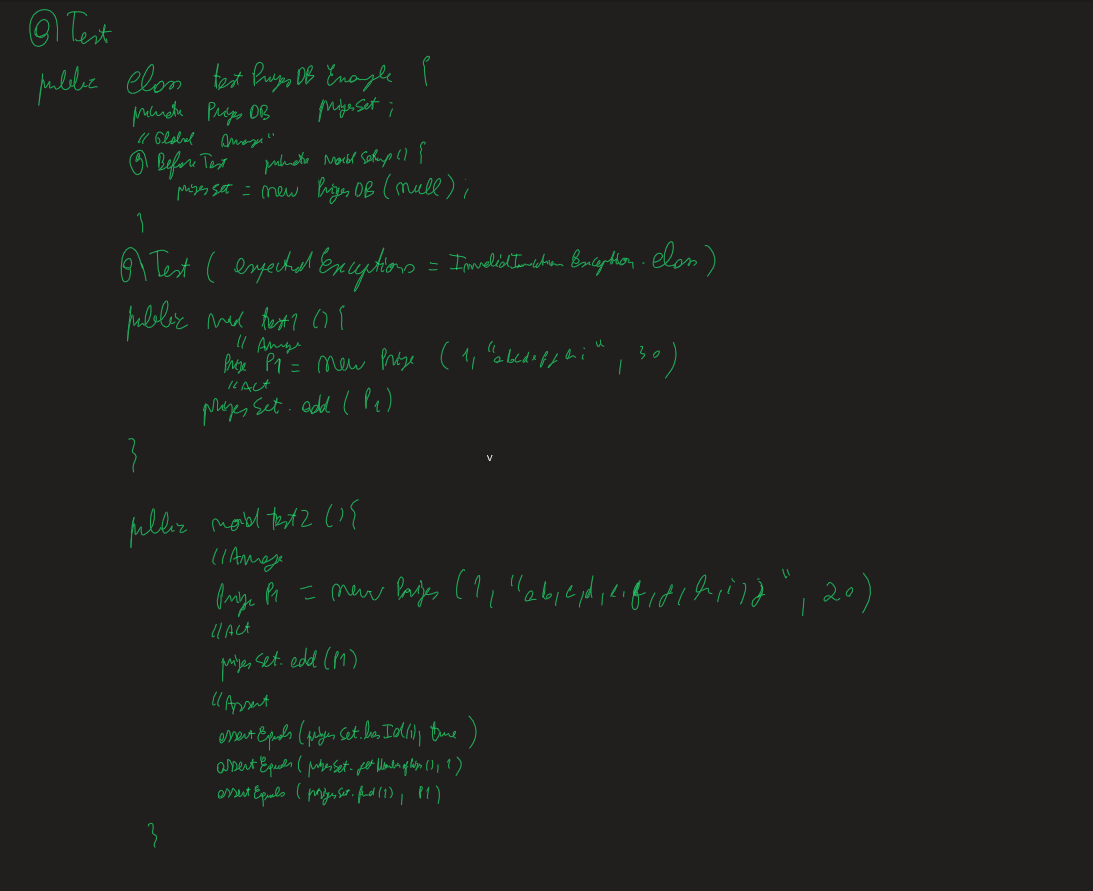 @Test
public class testPrizesDB Example {
private PrizesDB prizesSet;
"Global Arrange"
@BeforeTest private void Setup() {
prizesSet = new PrizesDB(null);
}
@Test (expectedExceptions = InvalidInvocationException.class)
public void test1 () {
// Arrange
Prize P1 = new Prize (1, "abcdefghi", 30)
//Act
prizesSet.add (P1)
}
v
public void test2 () {
//Arrange
Prize P1 = new Prizes (1, "ab,c,d,e,f,g,h,i,j", 20)
//Act
prizesSet.add (P1)
//Assert
assertEquals (prizesSet.hasId(1), true)
assertEquals (prizesSet.getNumberOfPrizes(), 1)
assertEquals (prizesSet.find(1), P1)
}